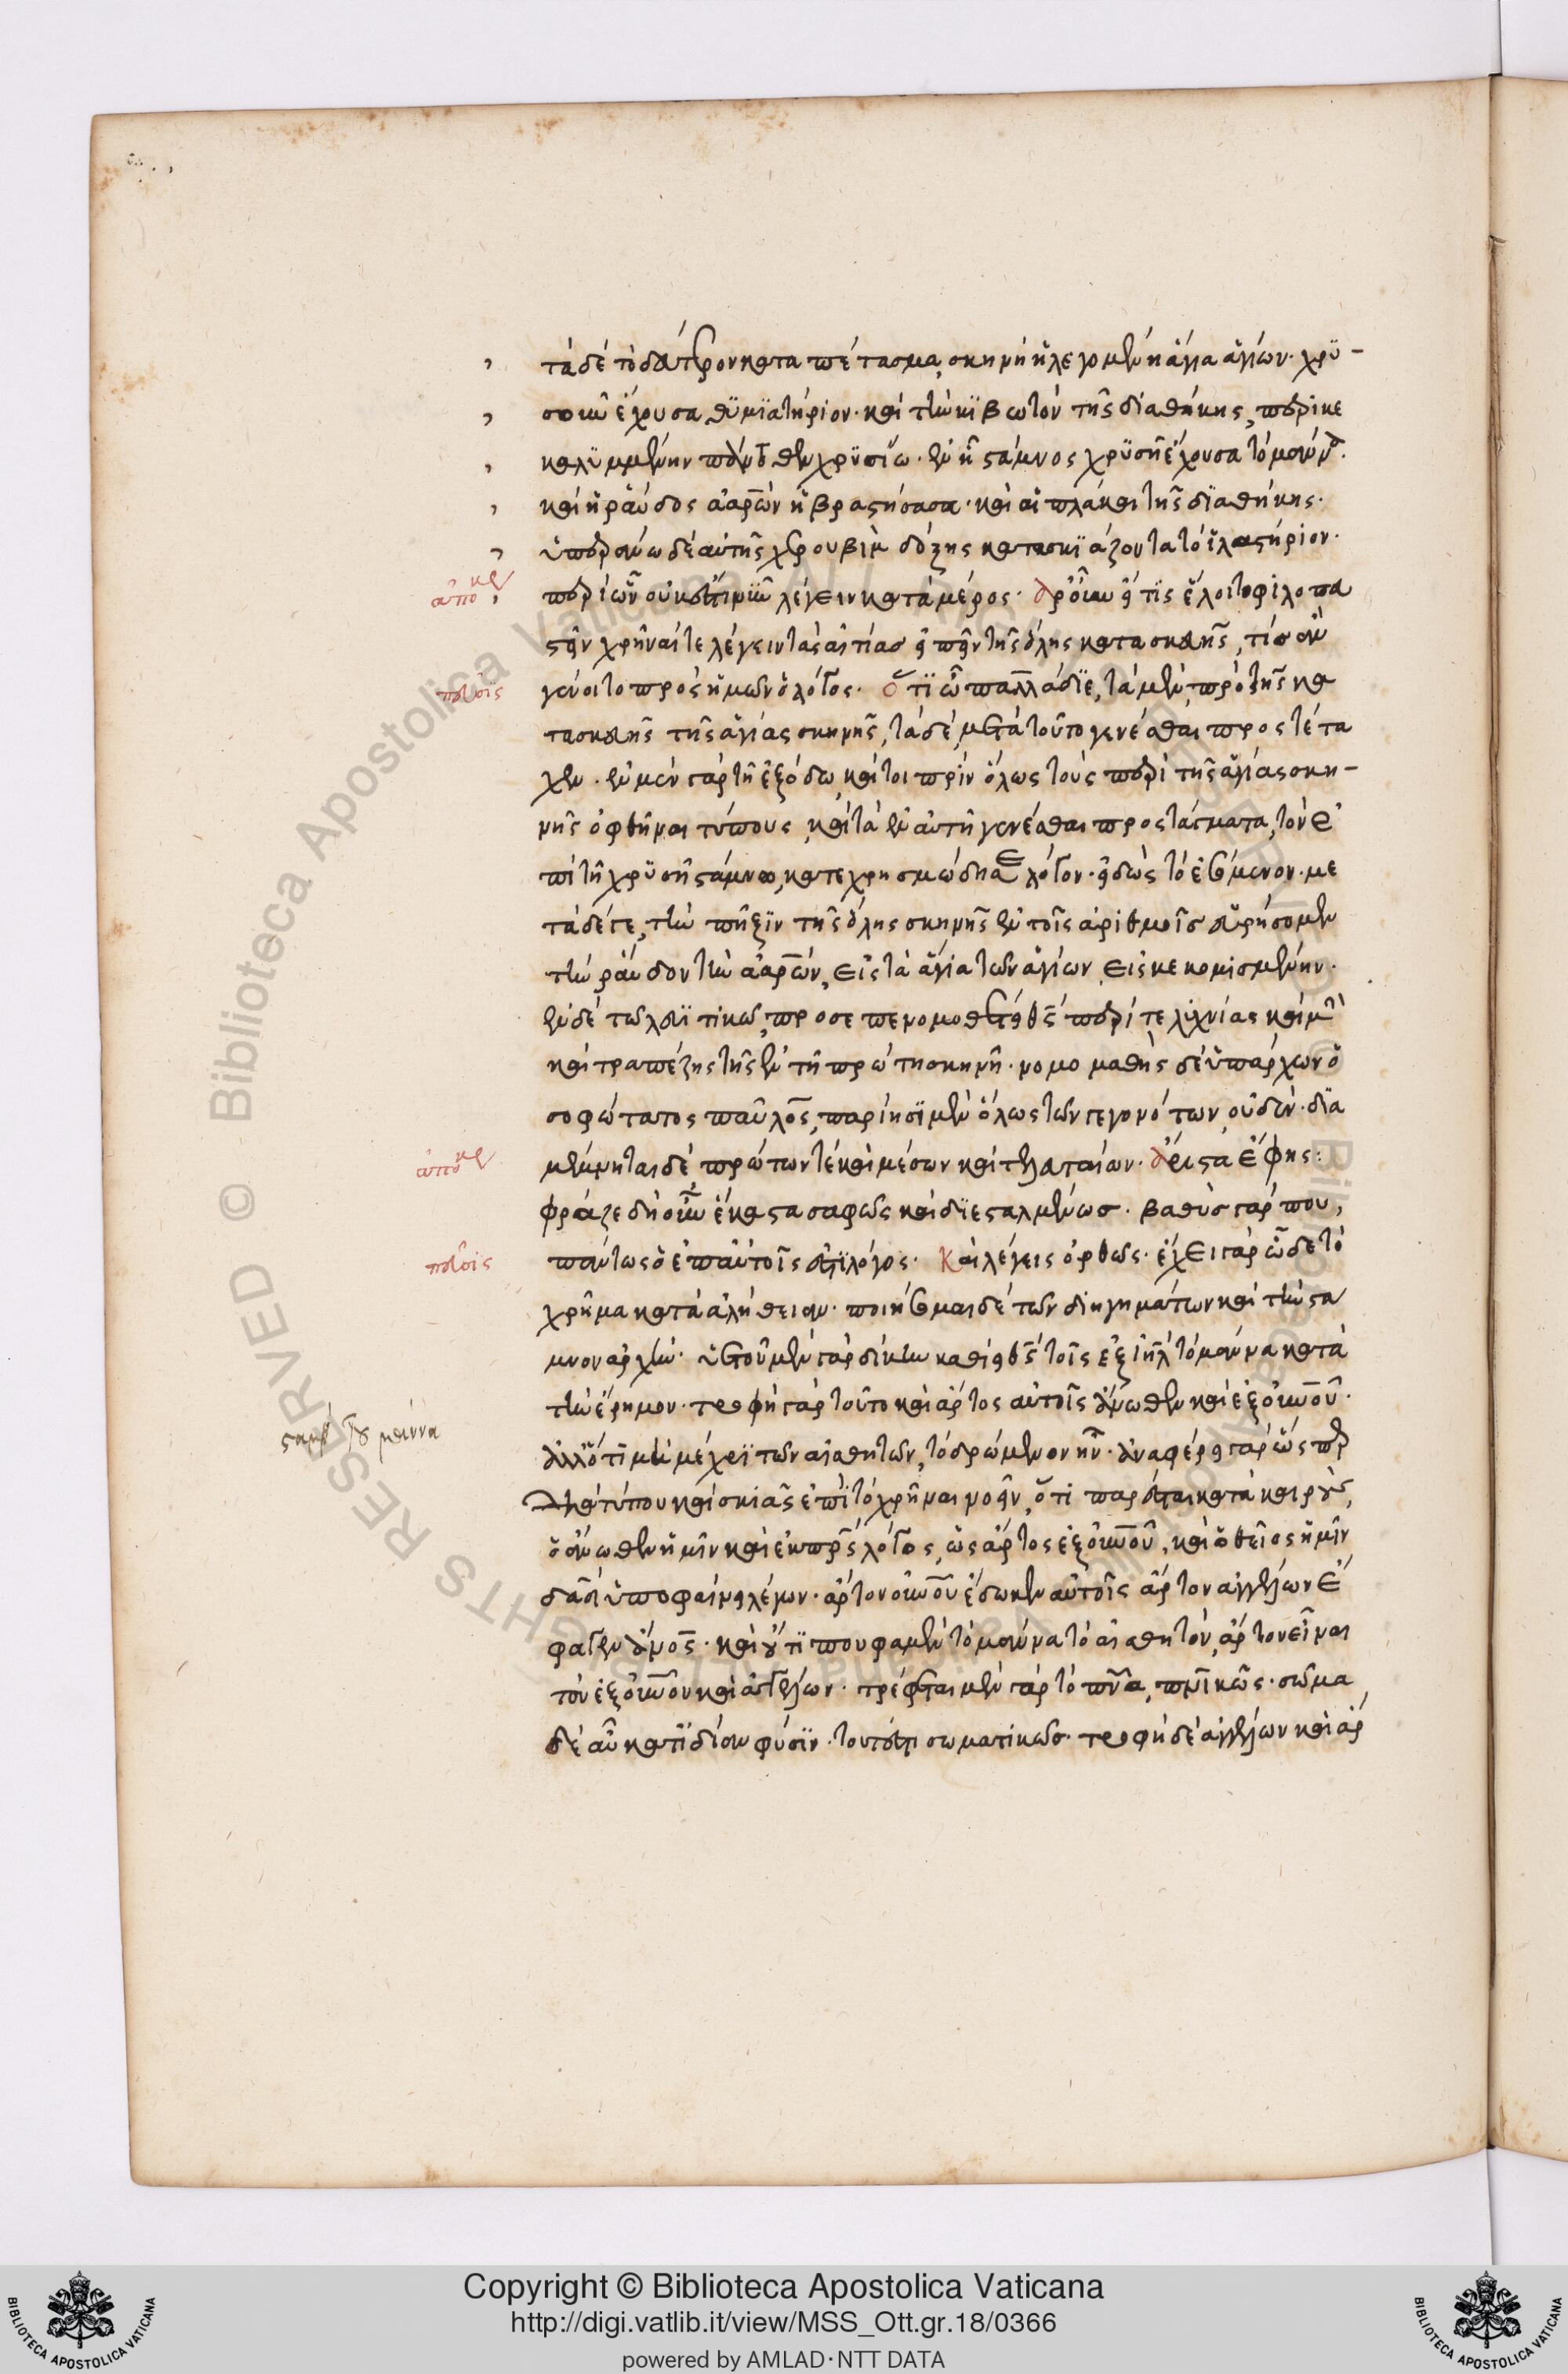 τὰ δὲ τὸ δεύτερον καταπέτασμα, σκηνὴ ἡ λεγομένη ἅγια ἁγίων· χρυ-
σοῦν ἔχουσα θυμϊατήριον· καὶ τὴν κϊβωτὸν τῆς διαθήκης, περικε
καλϋμμένην πάντοθεν χρϋσίω· ἐν ἧ στάμνος χρϋσῆ ἔχουσα τὸ μάννα·
καὶ ἡ ῥάβδος ἀαρὼν ἡ βλαστήσασα· καὶ αἱ πλάκαι τῆς δϊαθήκης·
ὑπεράνω δὲ αὐτῆς χερουβὶμ δόξης κατασκϊάζοντα τὸ ἱλαστήριον·
ἀποκρ περὶ ὧν οὐκ ἔστι νῦν λέγειν κατὰ μέρος· ἆρ' οὖν εἴ τις ἕλοιτο φιλοπευ
στεῖν χρῆναί τε λέγειν τὰς αἰτίας εἰπεῖν τῆς ὅλης κατασκευῆς, τίς ἂν
γένοιτο πρὸς ἡμῶν ὁ λόγος· ὅτϊ ὦ παλλάδϊε, τὰ μὲν πρὸ τῆς κα
τασκευῆς τῆς ἁγίας σκηνῆς, τὰ δὲ μετὰ τοῦτο γενέσθαι προστέτα
χεν· ἐν μὲν γὰρ τῆ ἐξόδω, καίτοι πρὶν ὅλως τοὺς περὶ τῆς ἁγίας σκη-
νῆς ὀφθῆναι τύπους, καὶ τὰ ἐν αὐτῆ γενέσθαι προστάγματα, τὸν ἐ
πὶ τῆ χρϋσῆ στάμνω, κατεχρησμώδησε λόγον· εἰδὼς τὸ ἐσόμενον· με
τὰ δέ γε, τὴν πῆξϊν τῆς ὅλης σκηνῆς ἐν τοῖς ἀριθμοῖς εὑρήσομεν
τὴν ῥάβδον τὴν ἀαρὼν, εἰς τὰ ἅγια τῶν ἁγίων εἰσκεκομισμένην·
ἐν δὲ τῶ λευϊτικῶ, προσεπενομοθετεῖτο περί τε λυχνίας καὶ μὴν
καὶ τραπέζης τῆς ἐν τῆ πρώτη σκηνῆ· νομομαθὴς δὲ ὑπάρχων ὁ
σοφώτατος παῦλος, παρίησϊ μὲν ὅλως τῶν γεγονότων οὐδέν· δϊα
ἀποκρ μέμνηται δὲ πρώτων τὲ καὶ μέσων καὶ τελευταίων· ἄριστα ἔφης:
φράζε δὴ οὖν ἕκαστα σαφῶς καὶ δϊεσταλμένως· βαθὺς γάρ που,
πάντως ὁ ἐπ' αὐτοῖς ἔστϊ λόγος· Καὶ λέγεις ὀρθῶς· ἔχει γὰρ ὧδε τὸ
χρῆμα κατὰ ἀλήθειαν· ποιήσομαι δὲ τῶν διηγημάτων καὶ τὴν στά
μνον ἀρχήν· ὑετοῦ μὲν γὰρ δίκην καθίετο τοῖς ἐξ ἰηλ τὸ μάννα κατὰ
τὴν ἔρημον· τροφὴ γὰρ τοῦτο καὶ ἄρτος αὐτοῖς ἄνωθεν καὶ ἐξ οὐνοῦ·
ἀλλ' ὅτι μὴ μέχρϊ τῶν αἰσθητῶν, τὸ δρώμενον ἦν· ἀναφέρει γὰρ ὥσπερ
διὰ τύπου καὶ σκιᾶς ἐπὶ τὸ χρῆναι νοεῖν, ὅτι παρέσται κατὰ καιροὺς
ὁ ἄνωθεν ἡμῖν καὶ ἐκ πρς λόγος, ὡς ἄρτος ἐξ οὐνοῦ, καὶ ὁ θεῖος ἡμῖν
δαδ ὑποφαίνει λέγων· ἄρτον οὐνοῦ ἔδωκεν αὐτοῖς ἄρτον ἀγγέλων ἔ
φαγεν ἄνος· καὶ οὔτϊ που φαμὲν τὸ μάννα τὸ αἰσθητὸν, ἄρτον εἶναι
τὸν ἐξ οὐνοῦ καὶ ἀγγέλων· τρέφεται μὲν γὰρ τὸ πνα, πνικῶς· σῶμα
δὲ αὖ κατ' ϊδίαν φύσϊν· τουτέστι σωματικῶς· τροφὴ δὲ ἀγγέλων καὶ ἄρ
Copyright © Biblioteca Apostolica Vaticana
http://digi.vatlib.it/view/MSS_Ott.gr.18/0366
powered by AMLAD · NTT DATA
BIBLIOTECA APOSTOLICA VATICANA
BIBLIOTECA APOSTOLICA VATICANA